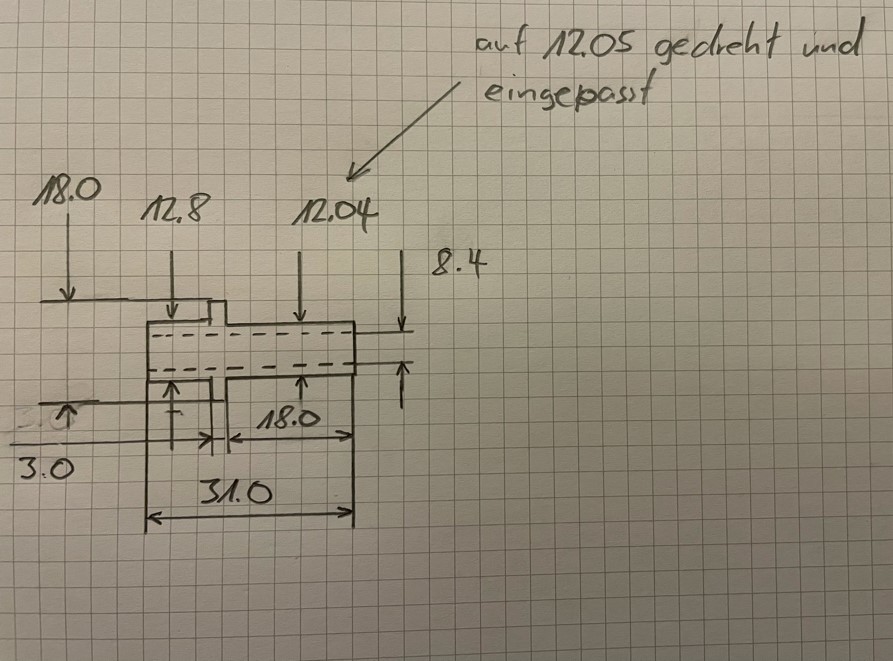 auf 12.05 gedreht und
eingepasst
18.0
12.8
12.04
8.4
18.0
3.0
31.0